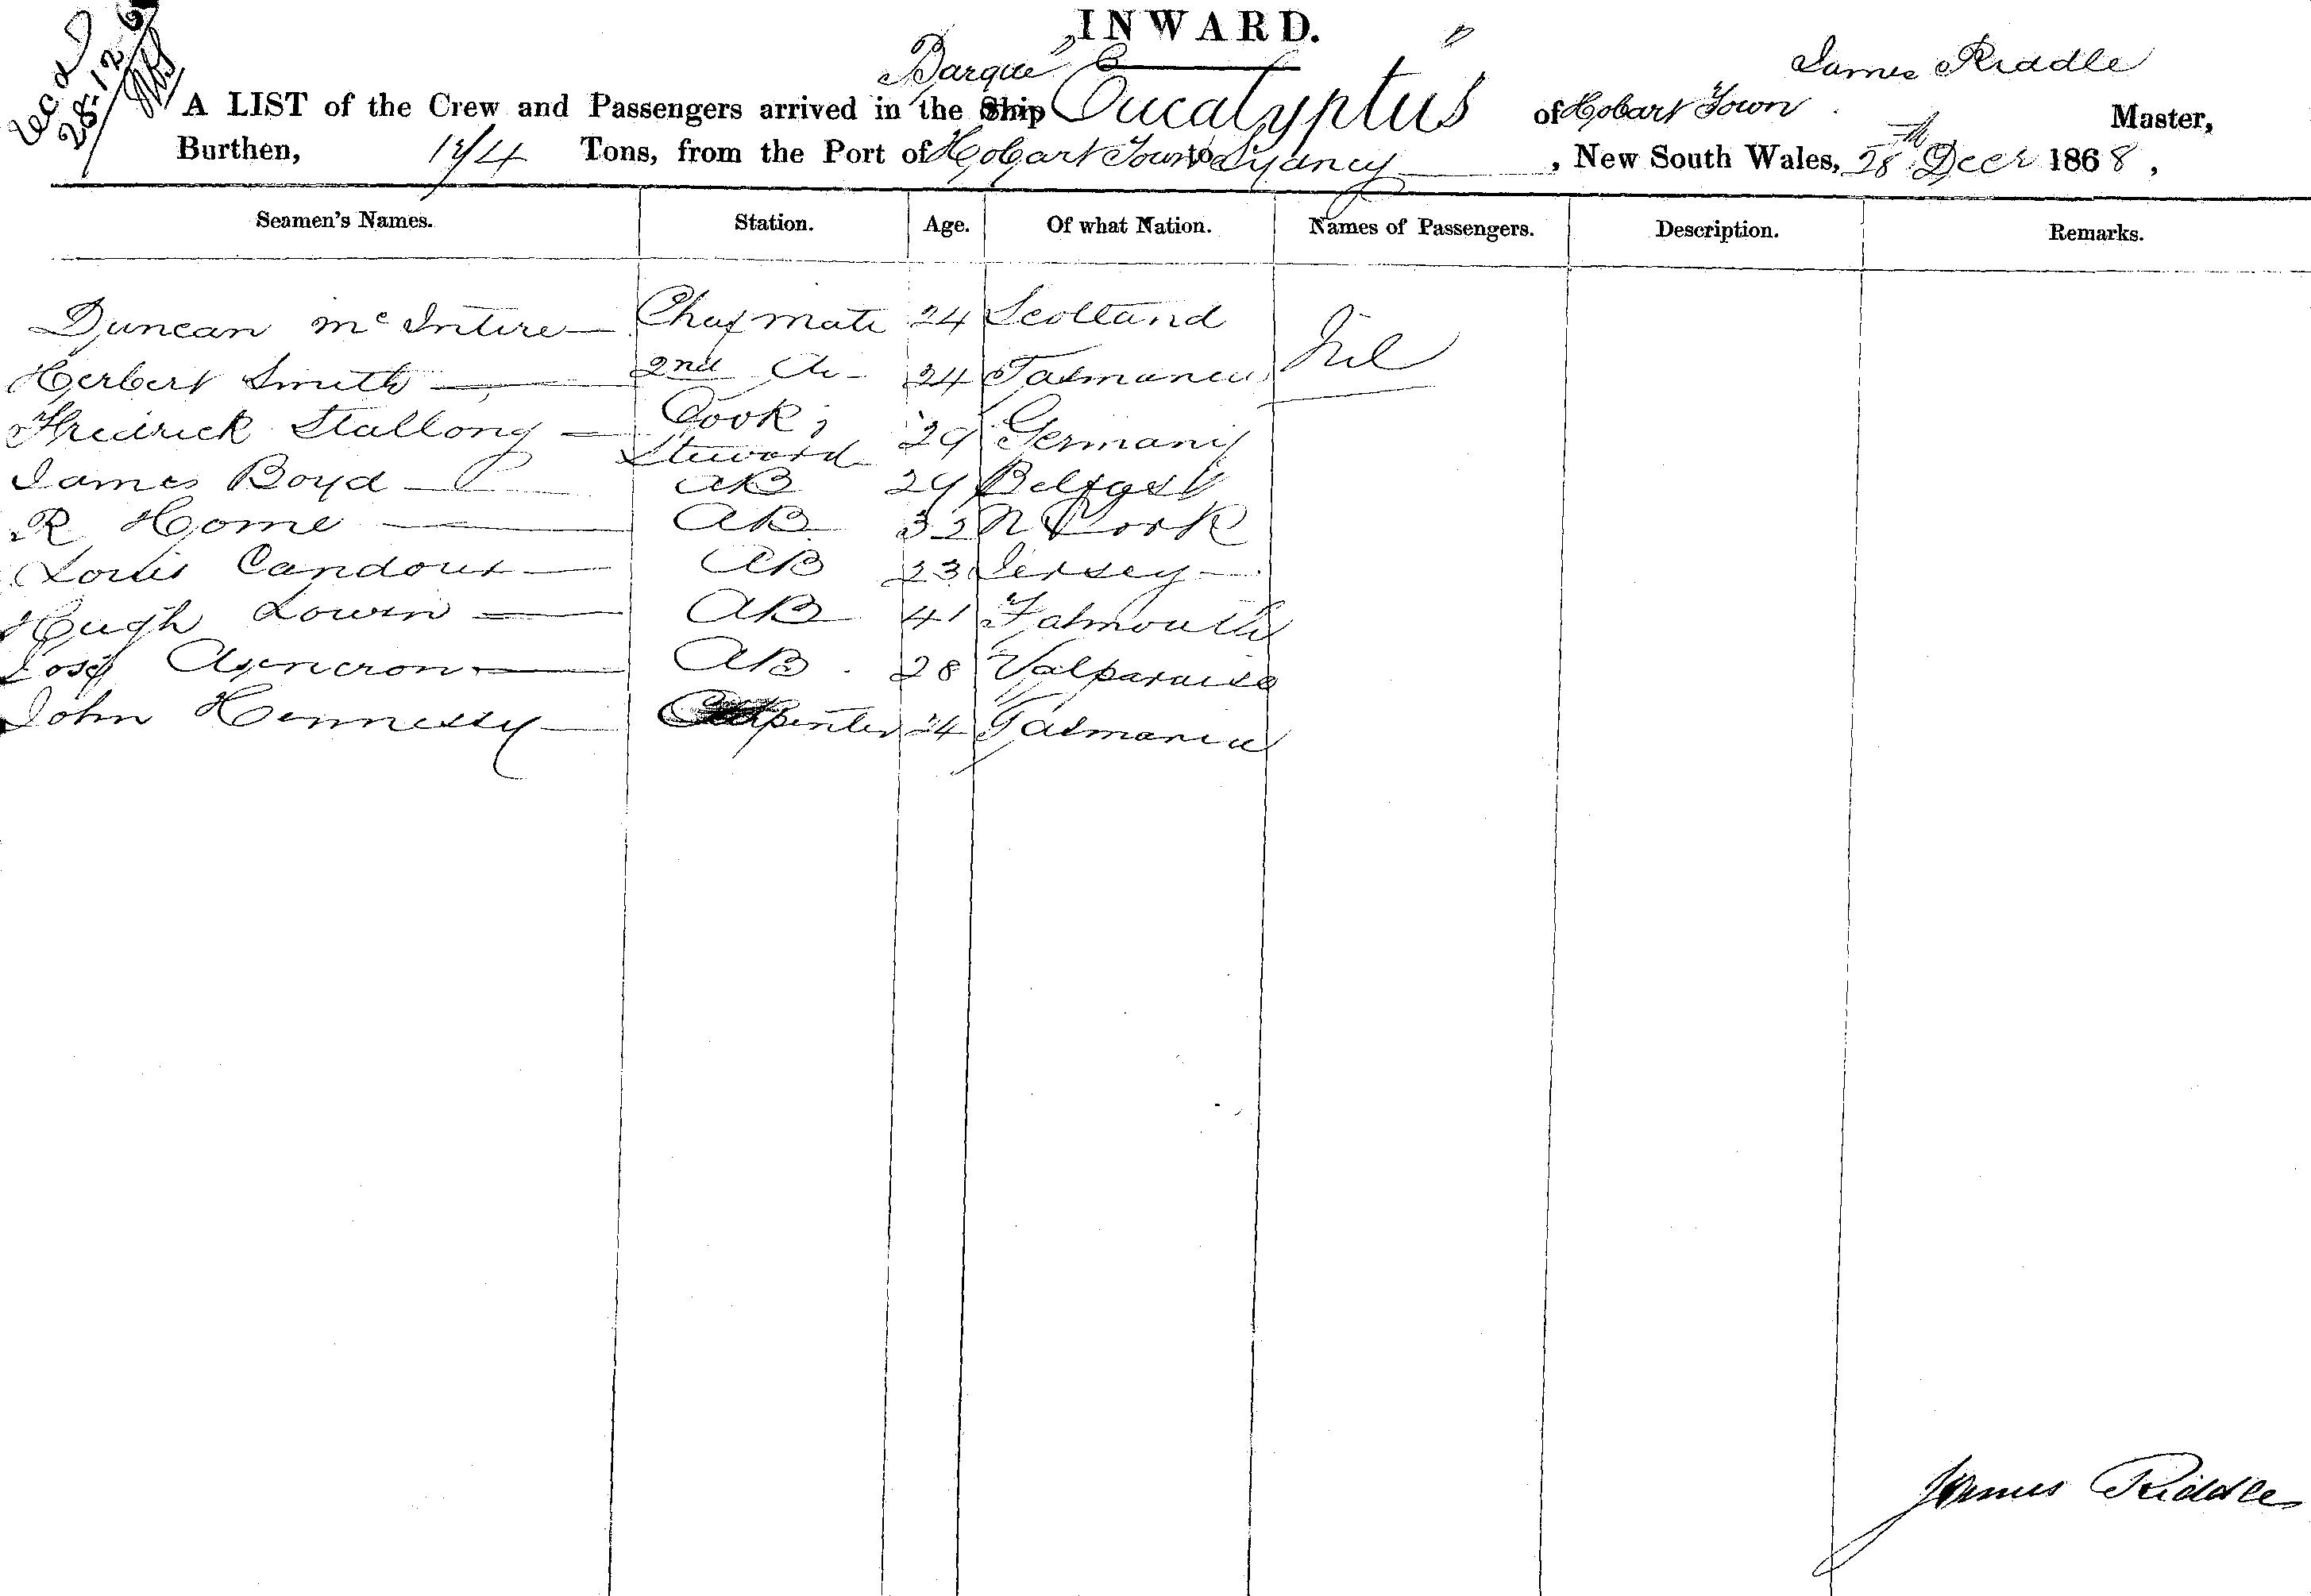 Recd
28-12-6
INWARD.
Barque
James Riddle
A LIST of the Crew and Passengers arrived in the Ship "Eucalyptus" of Hobart Town Master,
Burthen, Tons, from the Port of Hobart Town to Sydney, New South Wales, 28th Decr 1868,
Seamen's Names. Station. Age. Of what Nation. Names of Passengers. Description. Remarks.
Duncan McIntire Chief mate 24 Scotland Nil
Herbert Smith 2nd do 24 Tasmania
Fredrick Stallong Cook, 29 Germany
Steward
James Boyd AB 29 Belfast
R Home AB 32 N York
Louis AB 23 Jersey
Hugh AB 41 Falmouth
AB 28 Valparaiso
John Hennessy Carpenter 24 Tasmania
James Riddle